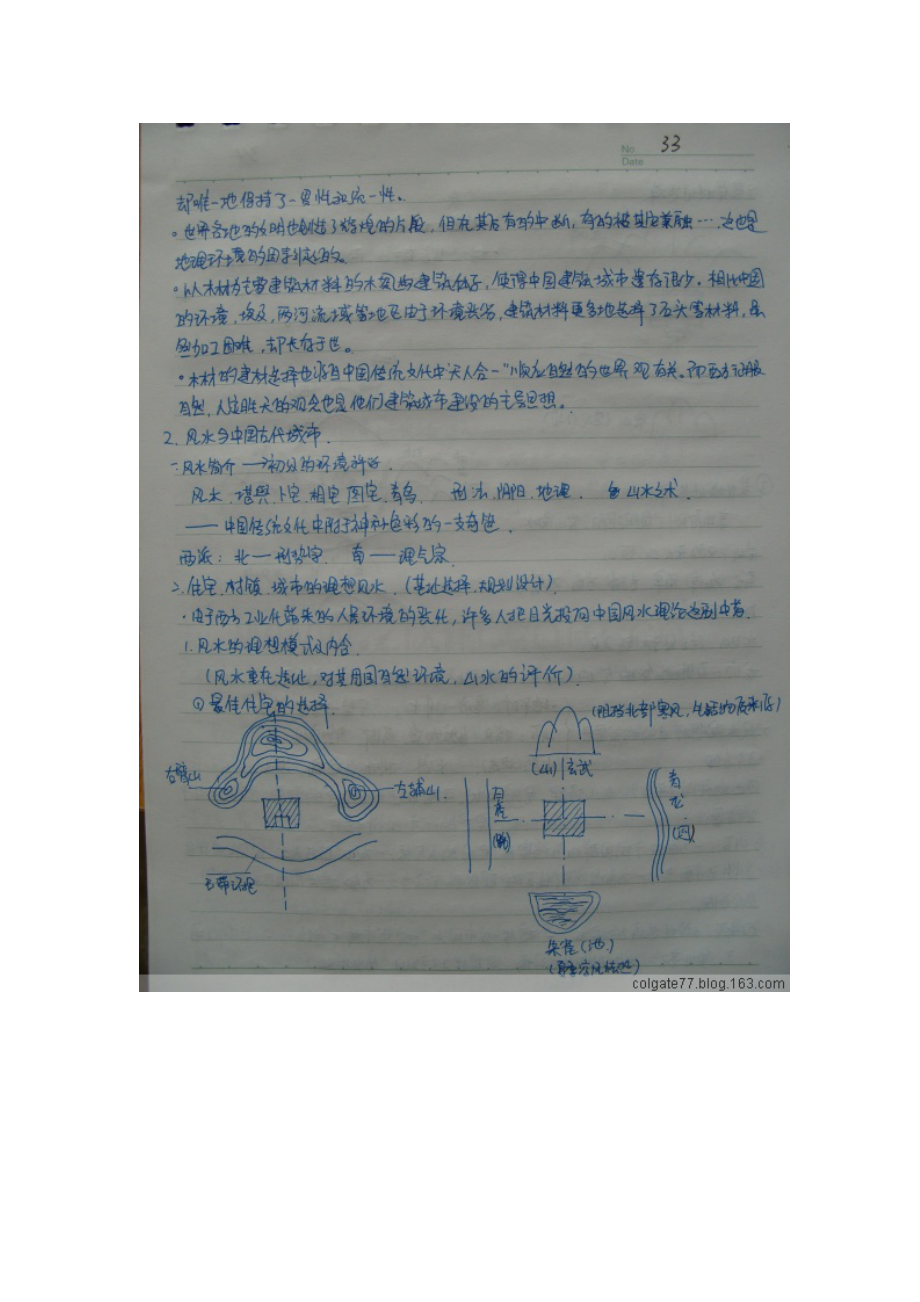 No 33
Date
却唯一地保持了一贯性和统一性。
• 世界各地的文明也创造了辉煌的片段，但在其后有的中断，有的被其它兼融…，这也是
地理环境的因素引起的。
• 以木材为主要建筑材料的木构的建筑体系，使得中国建筑城市遗存很少。相比中国
的环境，埃及，两河流域等地区由于环境恶劣，建筑材料更多地选择了石头等材料，虽
然加工困难，却长存于世。
• 木材的建材选择也将与中国传统文化中“天人合一”顺应自然的世界观有关。而西方征服
自然，人定胜天的观念也是他们建筑城市建设的主导思想。
2. 风水与中国古代城市.
一.风水简介 → 初分的环境评价.
风水.堪舆.卜宅.相宅.图宅.青乌. 形法.阴阳.地理. 山水之术.
—— 中国传统文化中附于神秘色彩的一支奇葩.
两派：北——形势宗. 南——理气宗.
二.住宅.村镇.城市的理想风水.（基址选择.规划设计）
• 由于西方工业化带来的人居环境的恶化，许多人把目光投向中国风水理论
1.风水的理想模式及内含.
（风水重在选址，对其周围自然环境，山水的评价）.
① 最佳住宅的选择.
(阻挡北部寒风，
(山) 玄武
右臂山
左辅山.
白虎
(路)
青龙
玉带环抱
朱雀（池.）
colgate77.blog.163.com